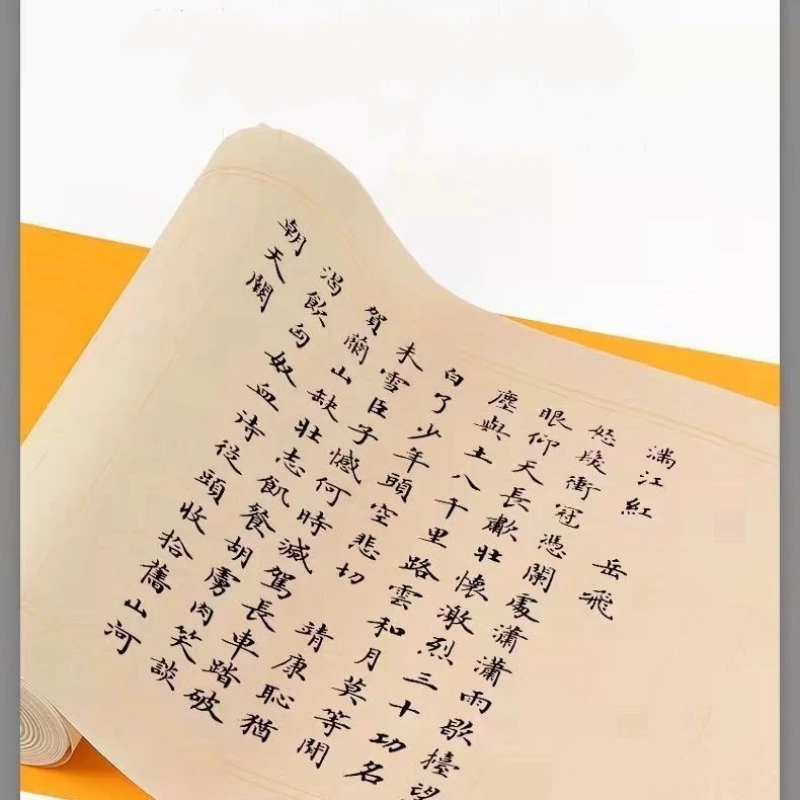 滿江紅 岳飛
怒髮衝冠憑闌處瀟瀟雨歇擡望
眼仰天長嘯壯懷激烈三十功名
塵與土八千里路雲和月莫等閒
白了少年頭空悲切 靖康恥猶
未雪臣子憾何時滅駕長車踏破
賀蘭山缺壯志飢餐胡虜肉笑談
渴飲匈奴血待從頭收拾舊山河
朝天闕